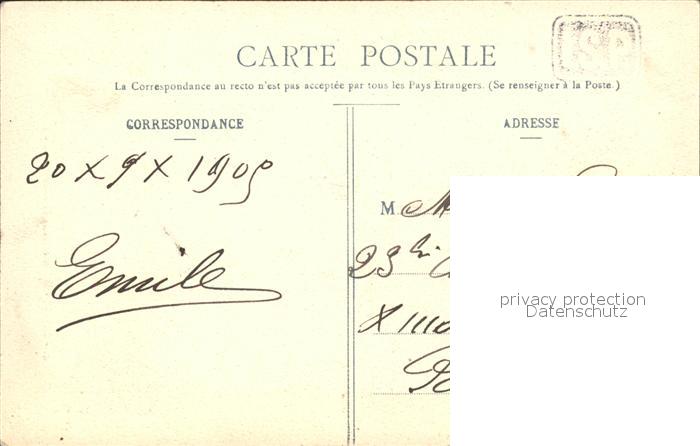 CARTE POSTALE
La Correspondance au recto n'est pas acceptée par tous les Pays Etrangers. (Se renseigner à la Poste.)
CORRESPONDANCE
20 X 9 X 1909
Emile
ADRESSE
M
privacy protection
Datenschutz